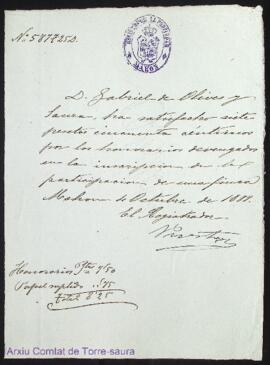 REGISTRO DE LA PROPIEDAD
MAHON
D. Gabriel de Olives y
Saura, ha satisfecho siete
pesetas cincuenta céntimos
por los honorarios devengados
en la inscripcion de la
participacion de una finca
Mahon 4 Octubre de
El Registrador
Honorarios Pts 7'50
Papel suplido " '75
Total 8'25
Arxiu Comtat de Torre-saura